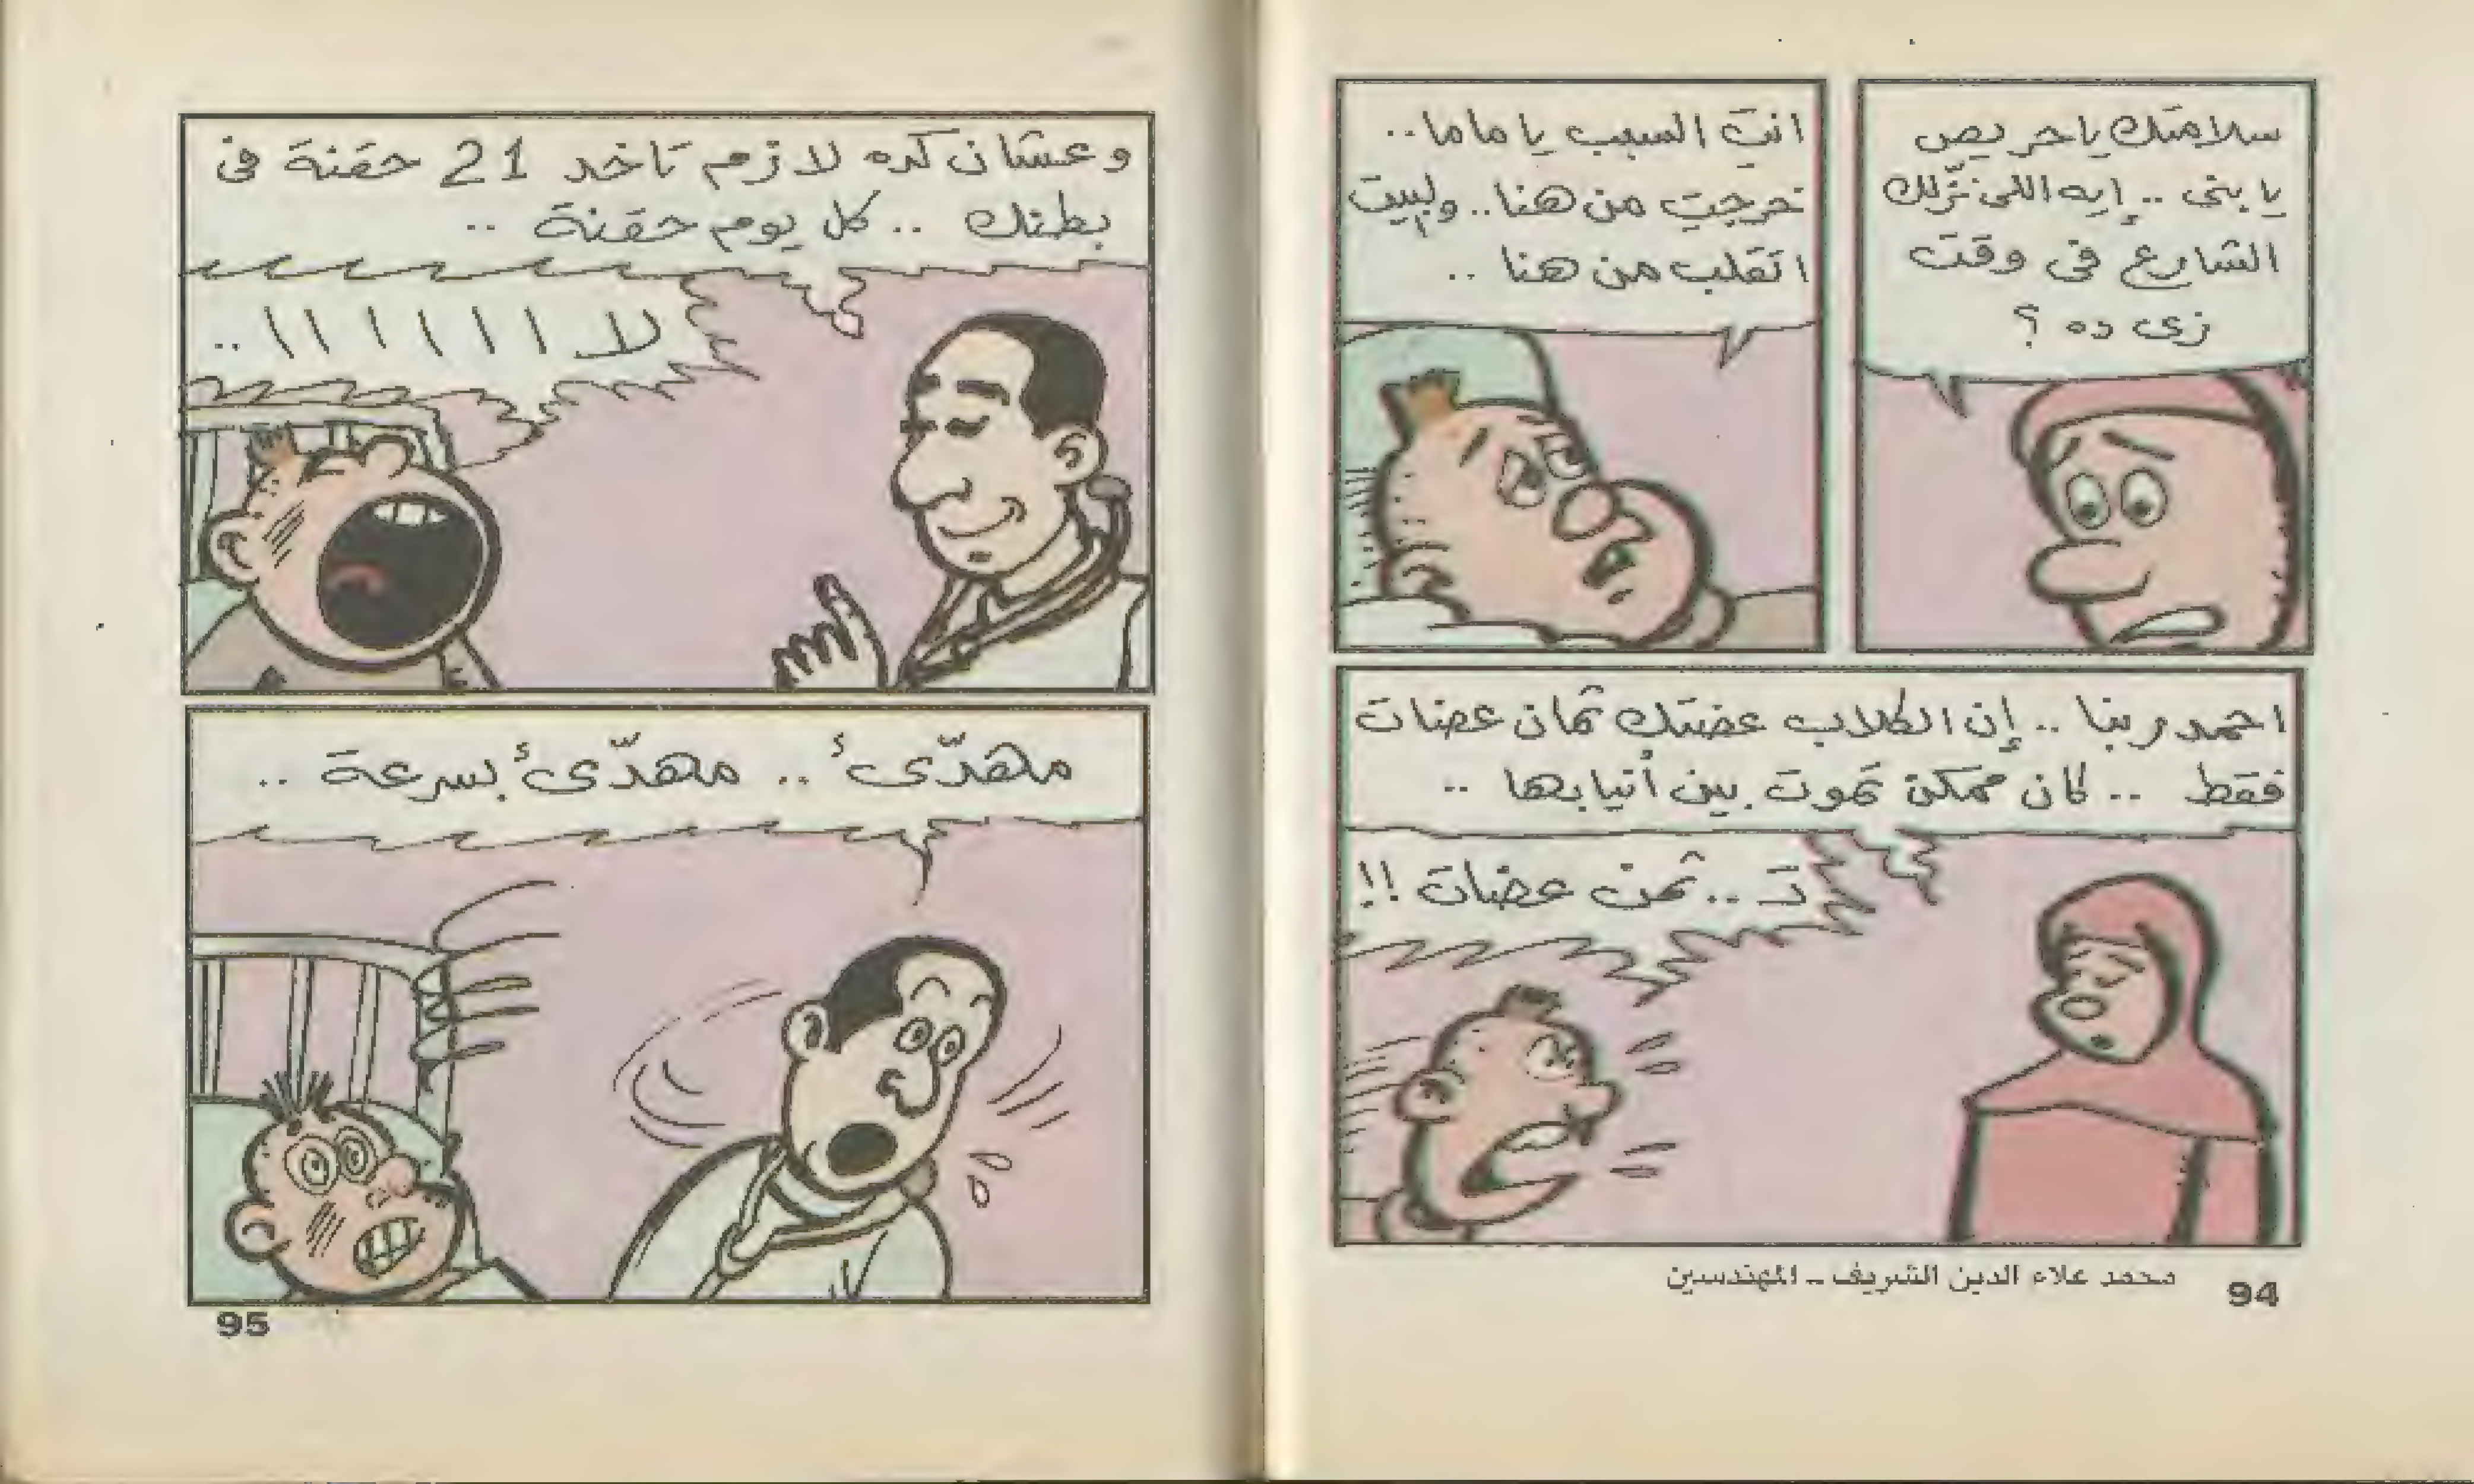 سلامتك ياحريص
يا بنى .. إيه اللى نزّلك
الشارع فى وقت
زى ده ؟
انتِ السبب يا ماما ..
خرجتِ من هنا .. والبيت
اتقلب من هنا ..
احمد ربنا .. إن الكلاب عضتك ثمان عضات
فقط .. كان ممكن تموت بين أنيابها ..
تـ .. ثمن عضات !!
محمد علاء الدين الشريف - المهندسين
94
وعشان كده لازم تاخد 21 حقنة فى
بطنك .. كل يوم حقنة ..
لا ا ا ا ا ا ا ..
مهدّئ .. مهدّئ بسرعة ..
95